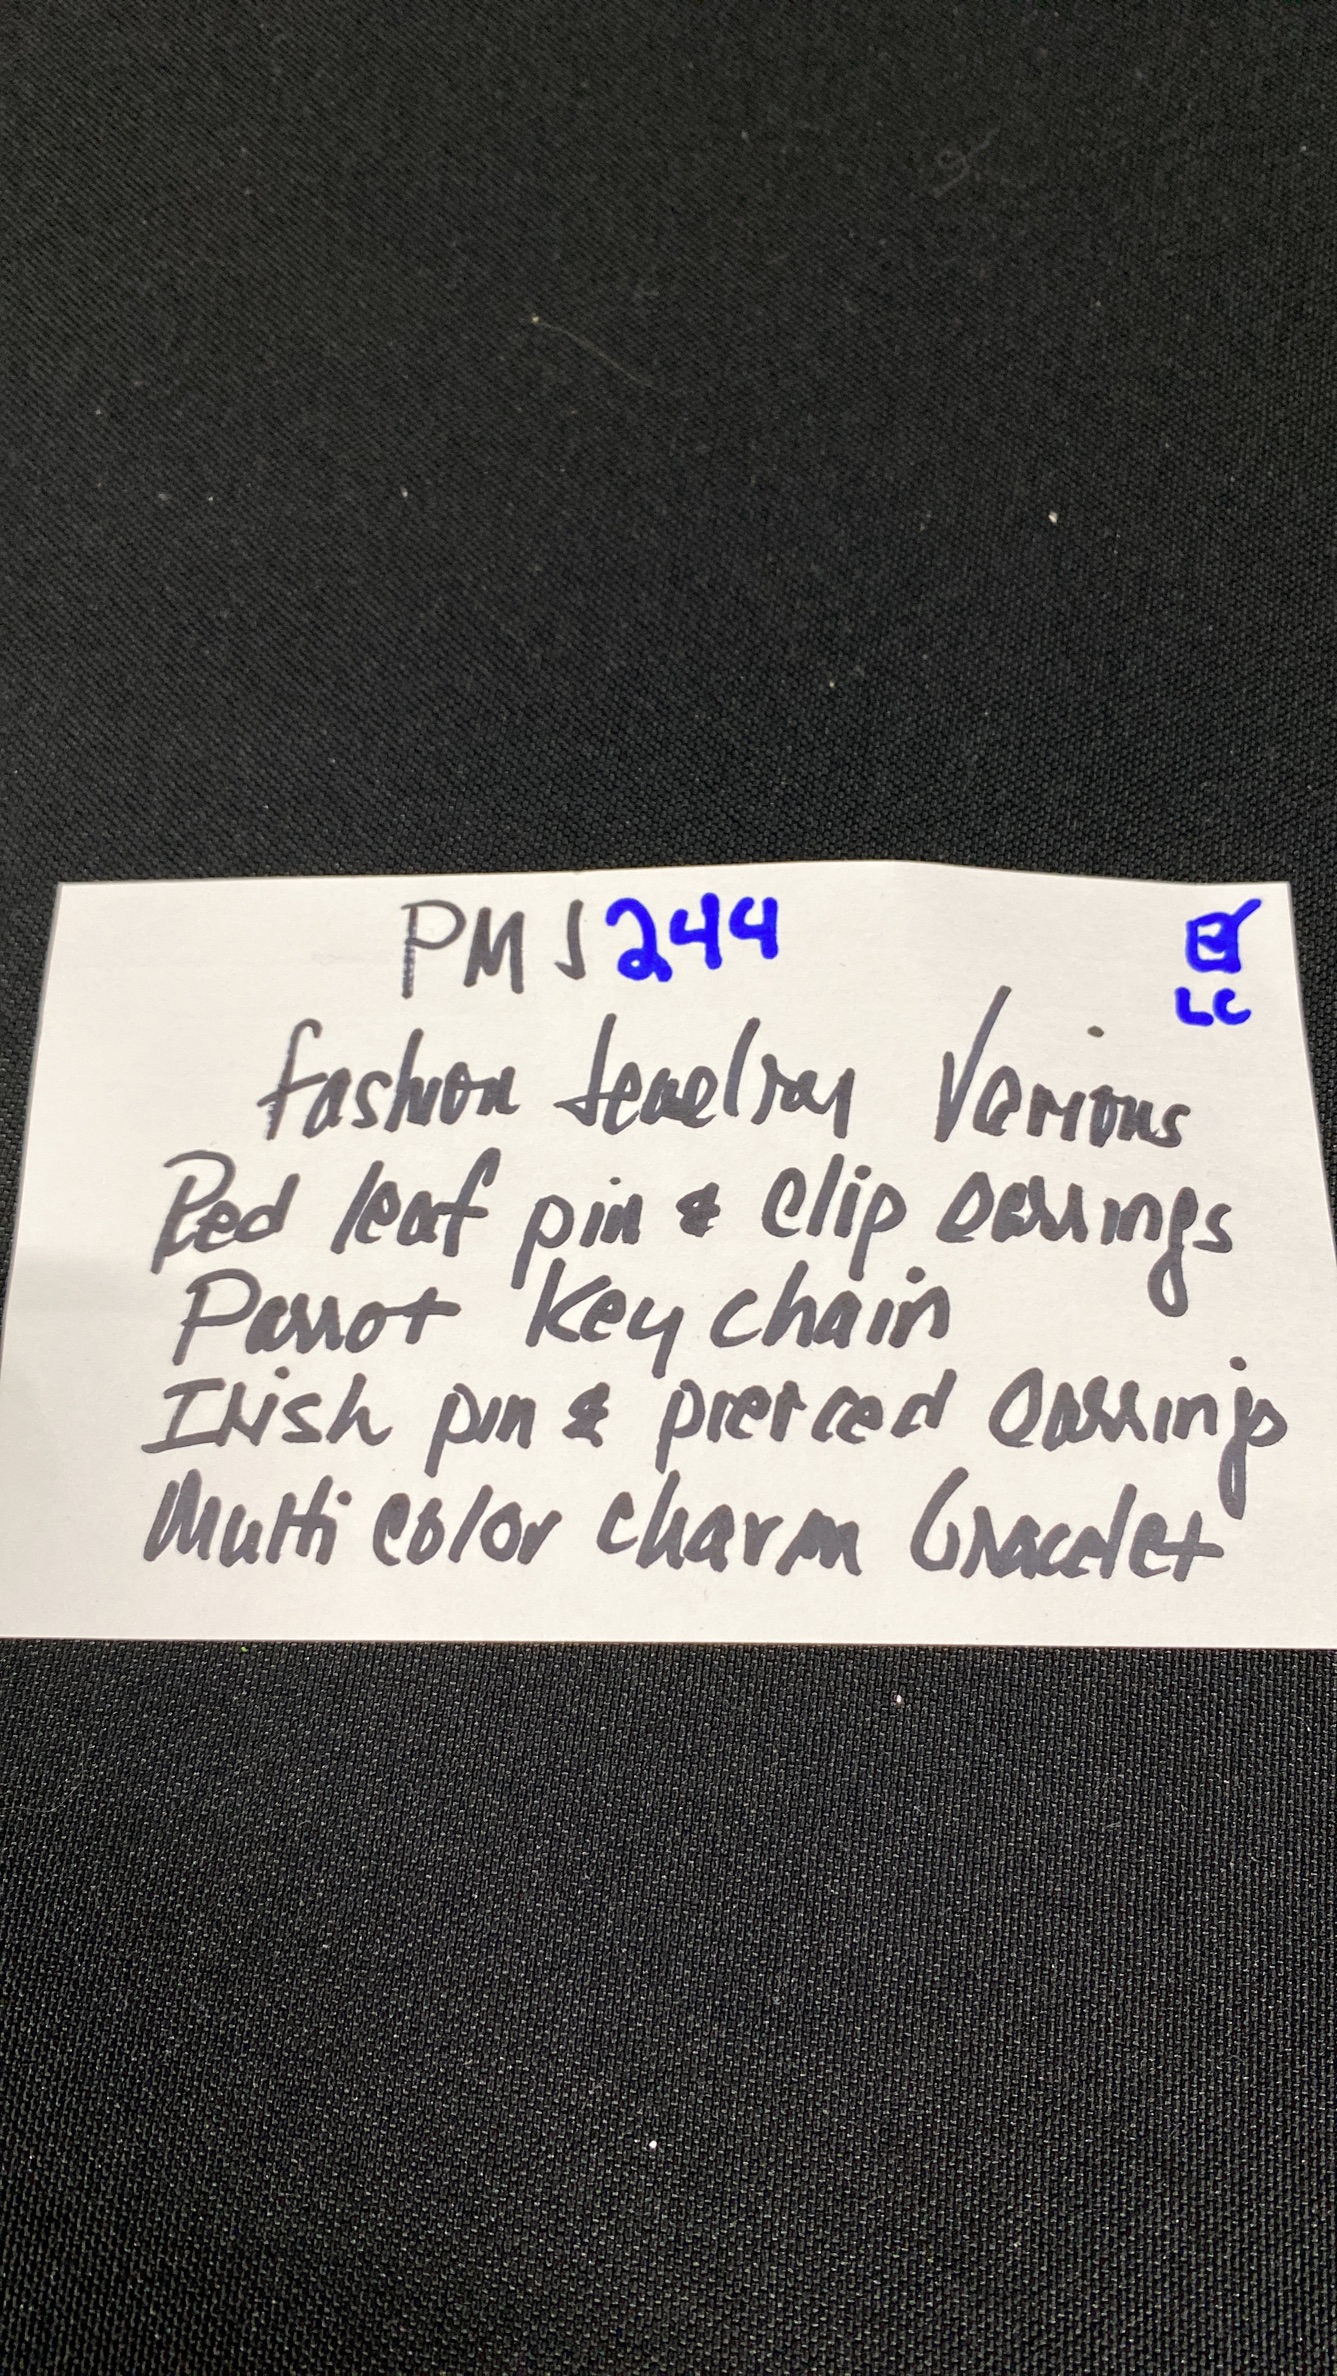 PMJ244
☑
LC
Fashion Jewelry Various
Red leaf pin & clip earrings
Parrot Key chain
Irish pin & pierced earrings
Multi color charm bracelet